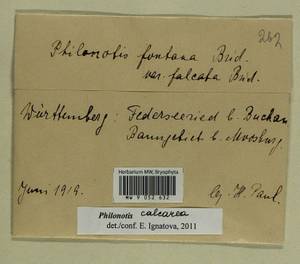 262
Philonotis fontana Brid.
var. falcata Brid.
Württemberg: Federseeried b. Buchau
Banngebiet b. Moosburg.
Herbarium MW, Bryophyta
MW 9 052 632
Juni 1919.
leg. H. Paul.
Philonotis calcarea
det./conf. E. Ignatova, 2011